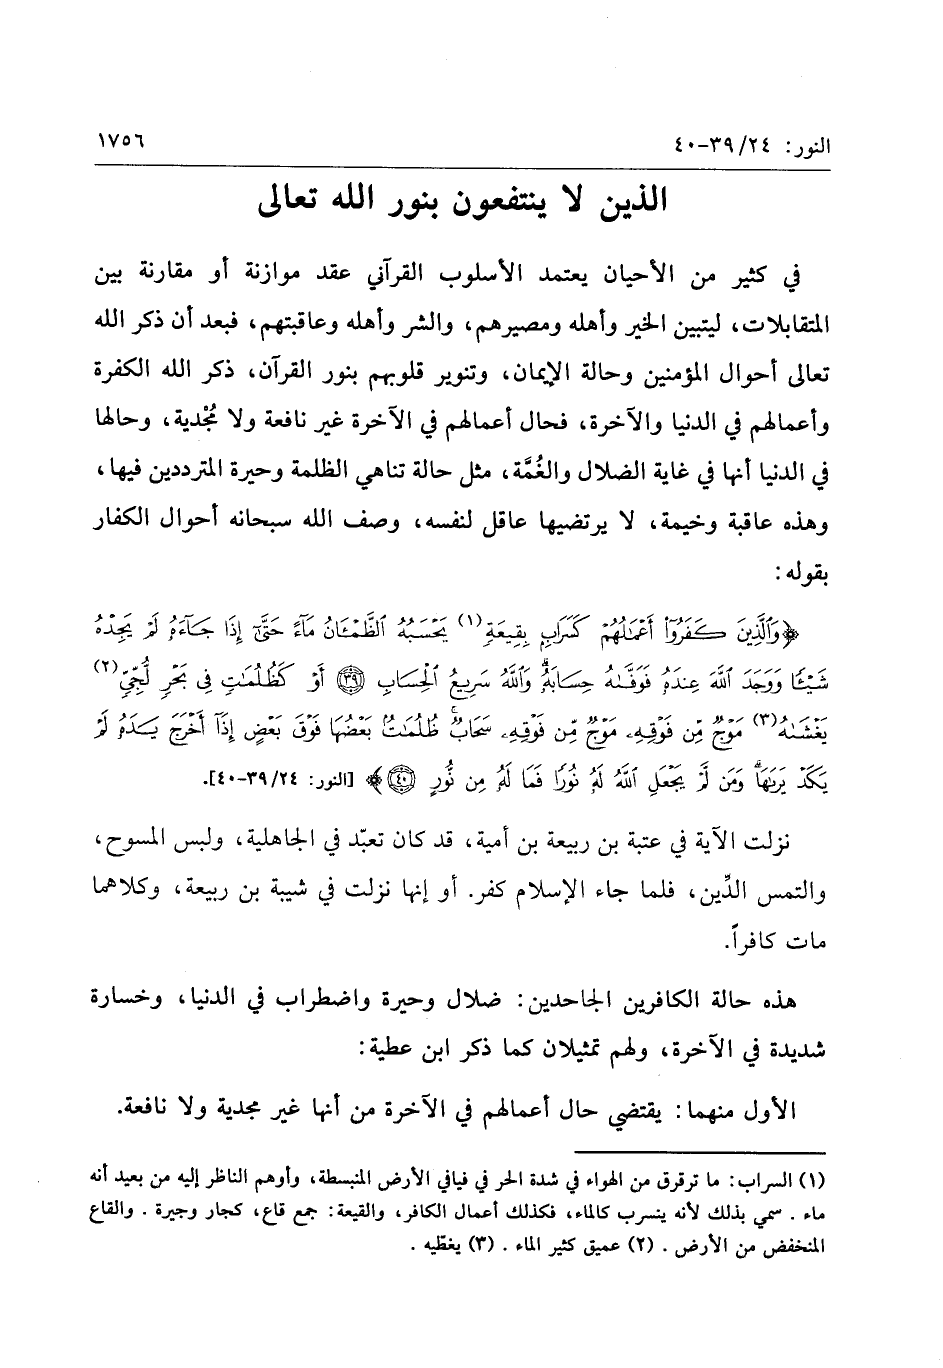 النور: ٢٤/ ٣٩-٤٠ ١٧٥٦
الذين لا ينتفعون بنور الله تعالى
في كثير من الأحيان يعتمد الأسلوب القرآني عقد موازنة أو مقارنة بين
المتقابلات، ليتبين الخير وأهله ومصيرهم، والشر وأهله وعاقبتهم، فبعد أن ذكر الله
تعالى أحوال المؤمنين وحالة الإيمان، وتنوير قلوبهم بنور القرآن، ذكر الله الكفرة
وأعمالهم في الدنيا والآخرة، فحال أعمالهم في الآخرة غير نافعة ولا مُجْدية، وحالها
في الدنيا أنها في غاية الضلال والغُمَّة، مثل حالة تناهي الظلمة وحيرة المترددين فيها،
وهذه عاقبة وخيمة، لا يرتضيها عاقل لنفسه، وصف الله سبحانه أحوال الكفار
بقوله:
﴿وَٱلَّذِينَ كَفَرُوٓا۟ أَعْمَـٰلُهُمْ كَسَرَابٍۭ بِقِيعَةٍ(١) يَحْسَبُهُ ٱلظَّمْـَٔانُ مَآءً حَتَّىٰٓ إِذَا جَآءَهُۥ لَمْ يَجِدْهُ
شَيْـًٔا وَوَجَدَ ٱللَّهَ عِندَهُۥ فَوَفَّىٰهُ حِسَابَهُۥ ۗ وَٱللَّهُ سَرِيعُ ٱلْحِسَابِ ﴿٣٩﴾ أَوْ كَظُلُمَـٰتٍ فِى بَحْرٍ لُّجِّىٍّ(٢)
يَغْشَىٰهُ(٣) مَوْجٌ مِّن فَوْقِهِۦ مَوْجٌ مِّن فَوْقِهِۦ سَحَابٌ ۚ ظُلُمَـٰتٌۢ بَعْضُهَا فَوْقَ بَعْضٍ إِذَآ أَخْرَجَ يَدَهُۥ لَمْ
يَكَدْ يَرَىٰهَا ۗ وَمَن لَّمْ يَجْعَلِ ٱللَّهُ لَهُۥ نُورًا فَمَا لَهُۥ مِن نُّورٍ ﴿٤٠﴾﴾ [النور: ٢٤/ ٣٩-٤٠].
نزلت الآية في عتبة بن ربيعة بن أمية، قد كان تعبّد في الجاهلية، ولبس المسوح،
والتمس الدِّين، فلما جاء الإسلام كفر. أو إنها نزلت في شيبة بن ربيعة، وكلاهما
مات كافراً.
هذه حالة الكافرين الجاحدين: ضلال وحيرة واضطراب في الدنيا، وخسارة
شديدة في الآخرة، ولهم تمثيلان كما ذكر ابن عطية:
الأول منهما: يقتضي حال أعمالهم في الآخرة من أنها غير مجدية ولا نافعة.
(١) السراب: ما ترقرق من الهواء في شدة الحر في فيافي الأرض المنبسطة، وأوهم الناظر إليه من بعيد أنه
ماء. سمي بذلك لأنه ينسرب كالماء، فكذلك أعمال الكافر، والقيعة: جمع قاع، كجار وجيرة. والقاع
المنخفض من الأرض. (٢) عميق كثير الماء. (٣) يغطّيه.